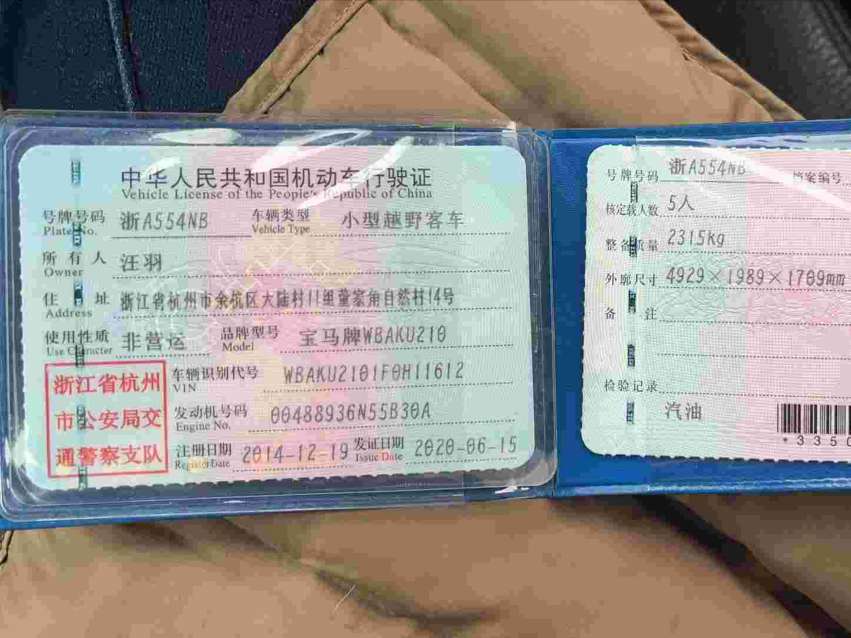 中华人民共和国机动车行驶证
Vehicle License of the People's Republic of China
号牌号码 浙A554NB 车辆类型 小型越野客车
Plate No. Vehicle Type
所有人 汪羽
Owner
住址 浙江省杭州市余杭区大陆村11组董家角自然村14号
Address
使用性质 非营运 品牌型号 宝马牌WBAKU210
Use Character Model
浙江省杭州
市公安局交
通警察支队
车辆识别代号 WBAKU2101F0H11612
VIN
发动机号码 00488936N55B30A
Engine No.
注册日期 2014-12-19 发证日期 2020-06-15
Register Date Issue Date
号牌号码 浙A554NB 档案编号
核定载人数 5人
整备质量 2315kg
外廓尺寸 4929×1989×1709mm
备注
检验记录
汽油
*3350